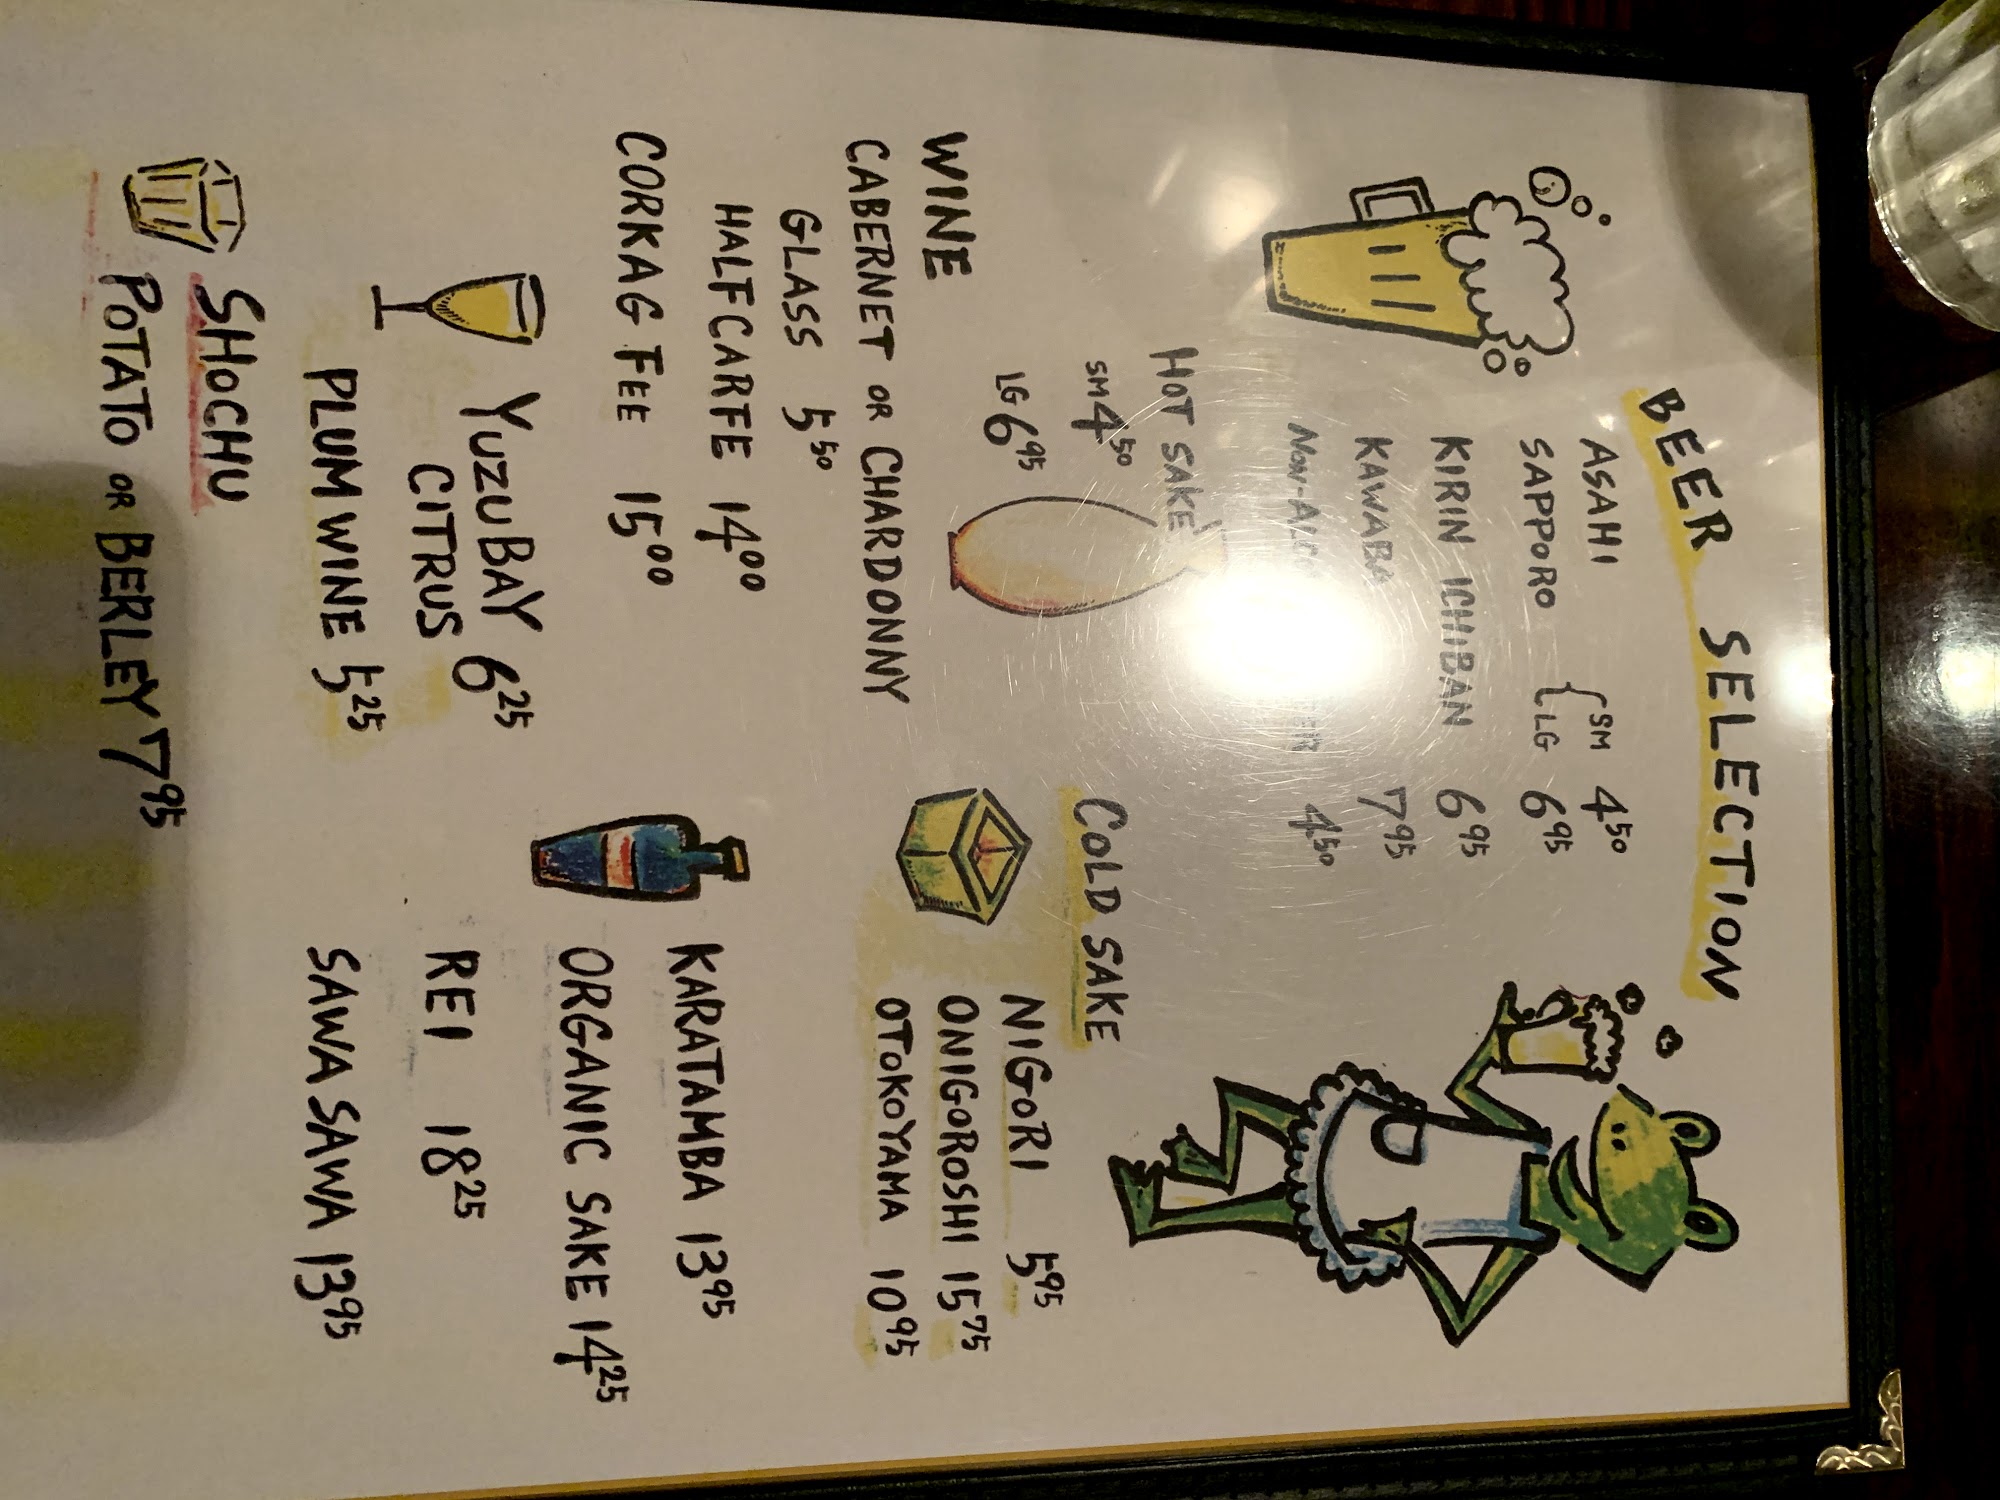 BEER SELECTION
ASAHI
SAPPORO
SM 4 50
LG 6 95
KIRIN ICHIBAN 6 95
KAWABA 7 95
NON-ALC 4 50
HOT SAKE
SM 4 50
LG 6 95
COLD SAKE
NIGORI 5 95
ONIGOROSHI 15 75
OTOKOYAMA 10 95
WINE
CABERNET OR CHARDONNY
GLASS 5 50
HALF CARFE 14 00
CORKAG FEE 15 00
KARATAMBA 13 95
ORGANIC SAKE 14 25
REI 18 25
SAWA SAWA 13 95
YUZUBAY
CITRUS 6 25
PLUM WINE 5 25
SHOCHU
POTATO OR BERLEY 7 95